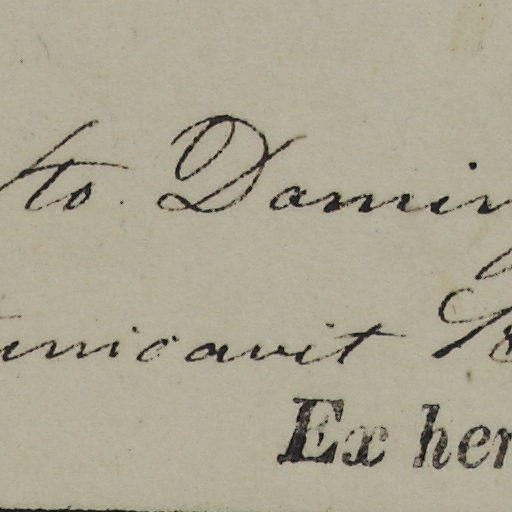 to. Domin
unicavit
Ex her